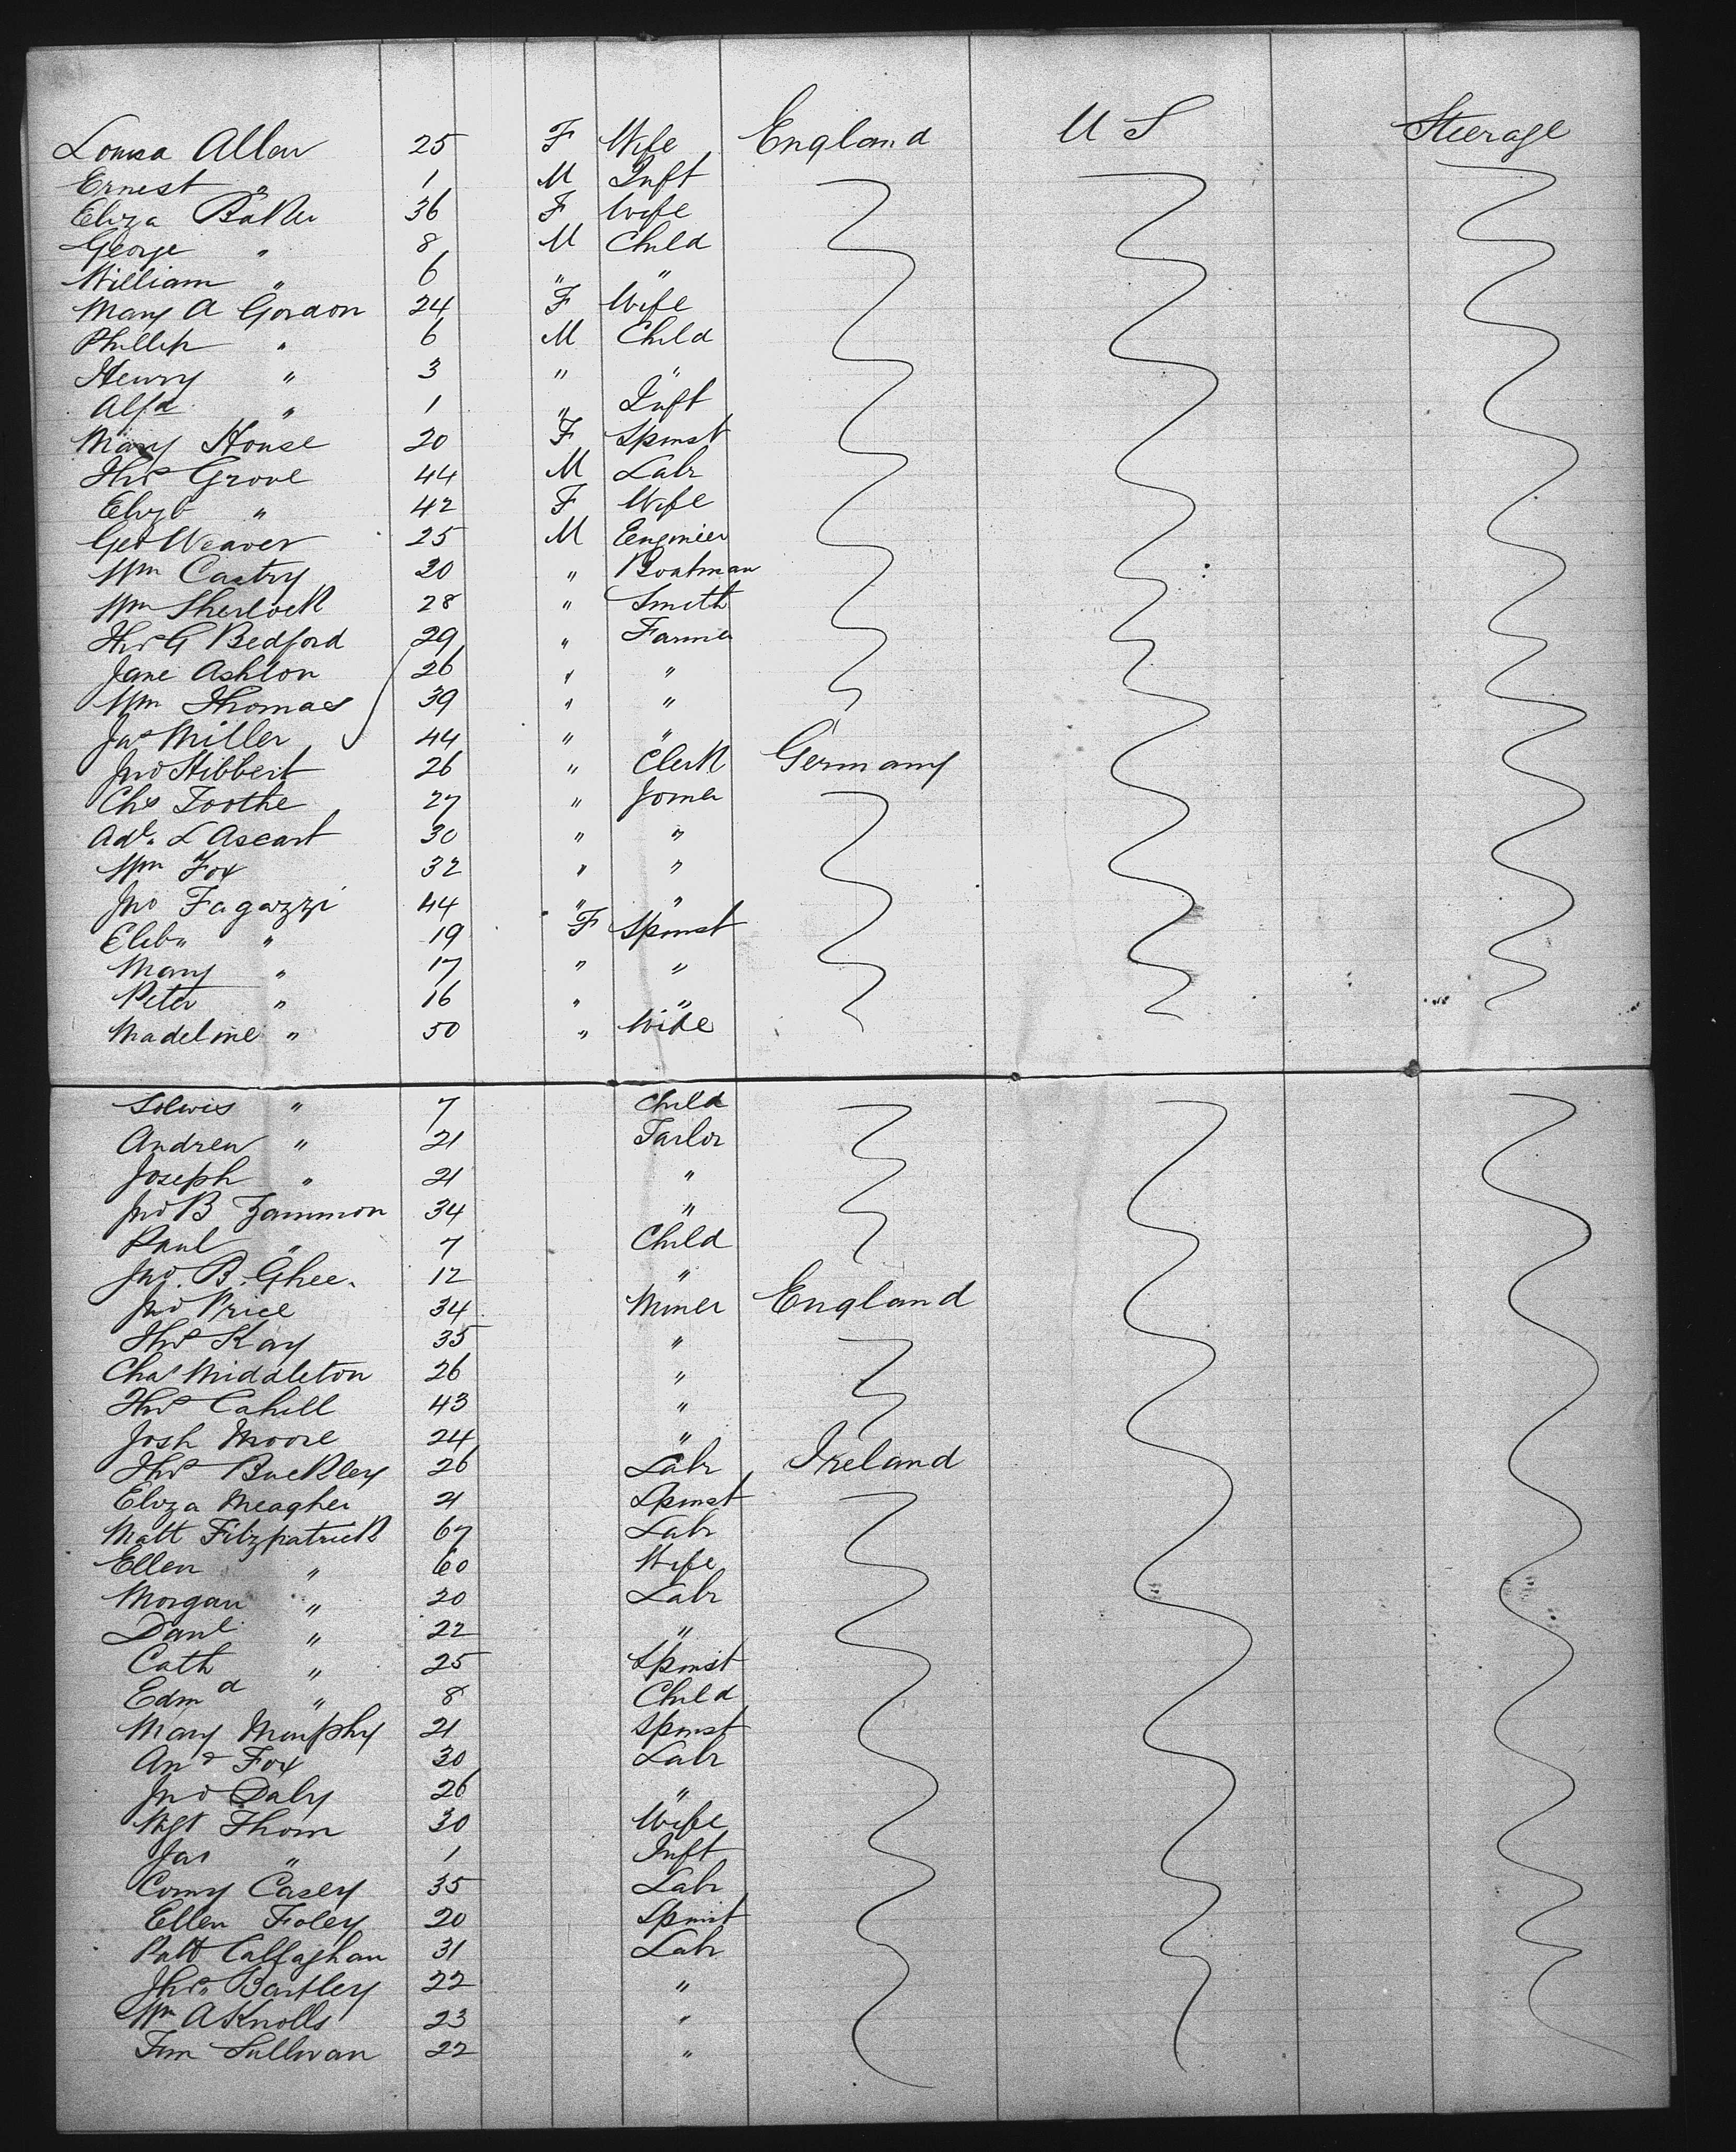 Louisa Allen 25 F Wife England U S Steerage
Ernest " 1 M Inft
Eliza Baker 36 F Wife
George " 8 M Child
William " 6 " "
Mary A Gordon 24 F Wife
Phillip " 6 M Child
Henry " 3 " "
Alfd " 1 " Inft
Mary House 20 F Spinst
Thos Grove 44 M Labr
Elizb " 42 F Wife
Geo Weaver 25 M Engineer
Wm Castry 30 " Boatman
Wm Sherlock 28 " Smith
Thos G Bedford 29 " Farmer
Jane Ashton 26 " "
Wm Thomas 39 " "
Jas Miller 44 " "
Jno Hibbert 26 " Clerk Germany
Chs Toothe 27 " Joiner
L Ascart 30 " "
Wm Fox 32 " "
Jno Fagazzi 44 " "
" 19 F Spinst
Mary " 17 " "
Peter " 16 " "
Madeline " 50 " Wife
" 7 Child
Andrew " 21 Tailor
Joseph " 21 "
Jno B Zammon 34 "
Paul " 7 Child
Jno. B. Ghee. 12 "
Jno Price 34 Miner England
Thos Kay 35 "
Chas Middleton 26 "
Thos Cahill 43 "
Josh Moore 24 "
Thos Buckley 26 Labr Ireland
Eliza Meagher 21 Spinst
Matt Fitzpatrick 67 Labr
Ellen " 60 Wife
Morgan " 20 Labr
Danl " 22 "
Cath " 25 Spinst
Edmd " 8 Child
Mary Murphy 21 Spinst
Andw Fox 30 Labr
Jno Daly 26 "
Mgt Thom 30 Wife
Jas " 1 Inft
Corny Casey 35 Labr
Ellen Foley 20 Spinst
Patt Callaghan 31 Labr
Thos Bartley 22 "
Wm A Knolls 23 "
Tim Sullivan 22 "